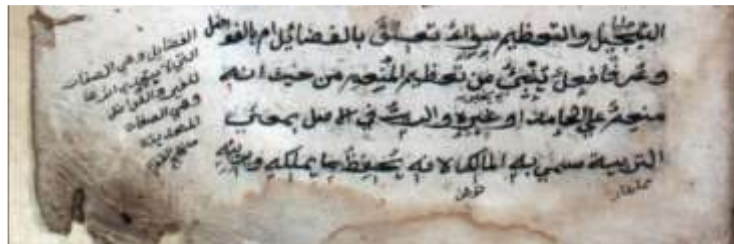 التبجيل والتعظيم سواء تعلق بالفضائل ام بالفواضل
وعرفا فعل ينبئ عن تعظيم المنعم من حيث انه
منعم على الحامد او غيره والرب في الاصل بمعنى
التربية سمي به المالك لانه يحفظ ما يملكه ويربيه
الفضايل وهي الصفات
وهي الصفات
المتعدية